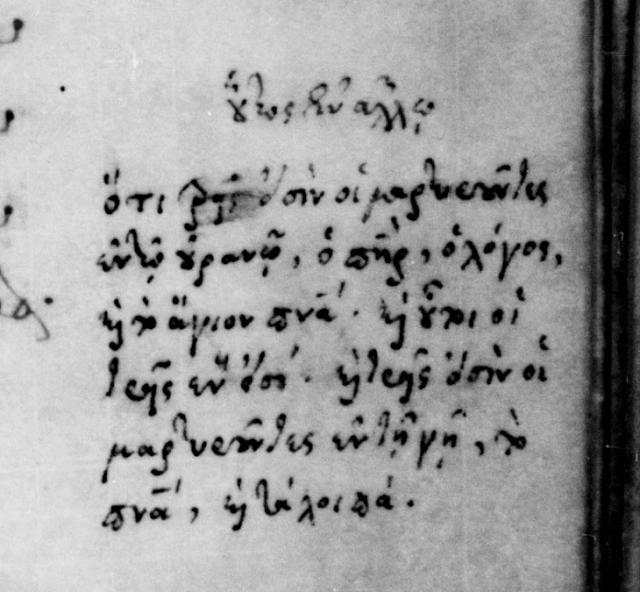 οὕτος ἐν ἄλλῳ
ὅτι τρεῖς εἰσὶν οἱ μαρτυροῦντες
ἐν τῷ οὐρανῷ, ὁ πη̅ρ, ὁ λόγος,
καὶ τὸ ἅγιον πνα̅. καὶ οὗτοι οἱ
τρεῖς ἕν εἰσί. καὶ τρεῖς εἰσὶν οἱ
μαρτυροῦντες ἐν τῇ γῇ, τὸ
πνα̅, καὶ τὰ λοιπά.